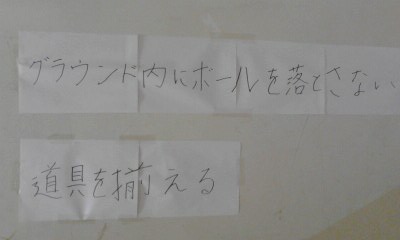 グラウンド内にボールを落とさない
道具を揃える